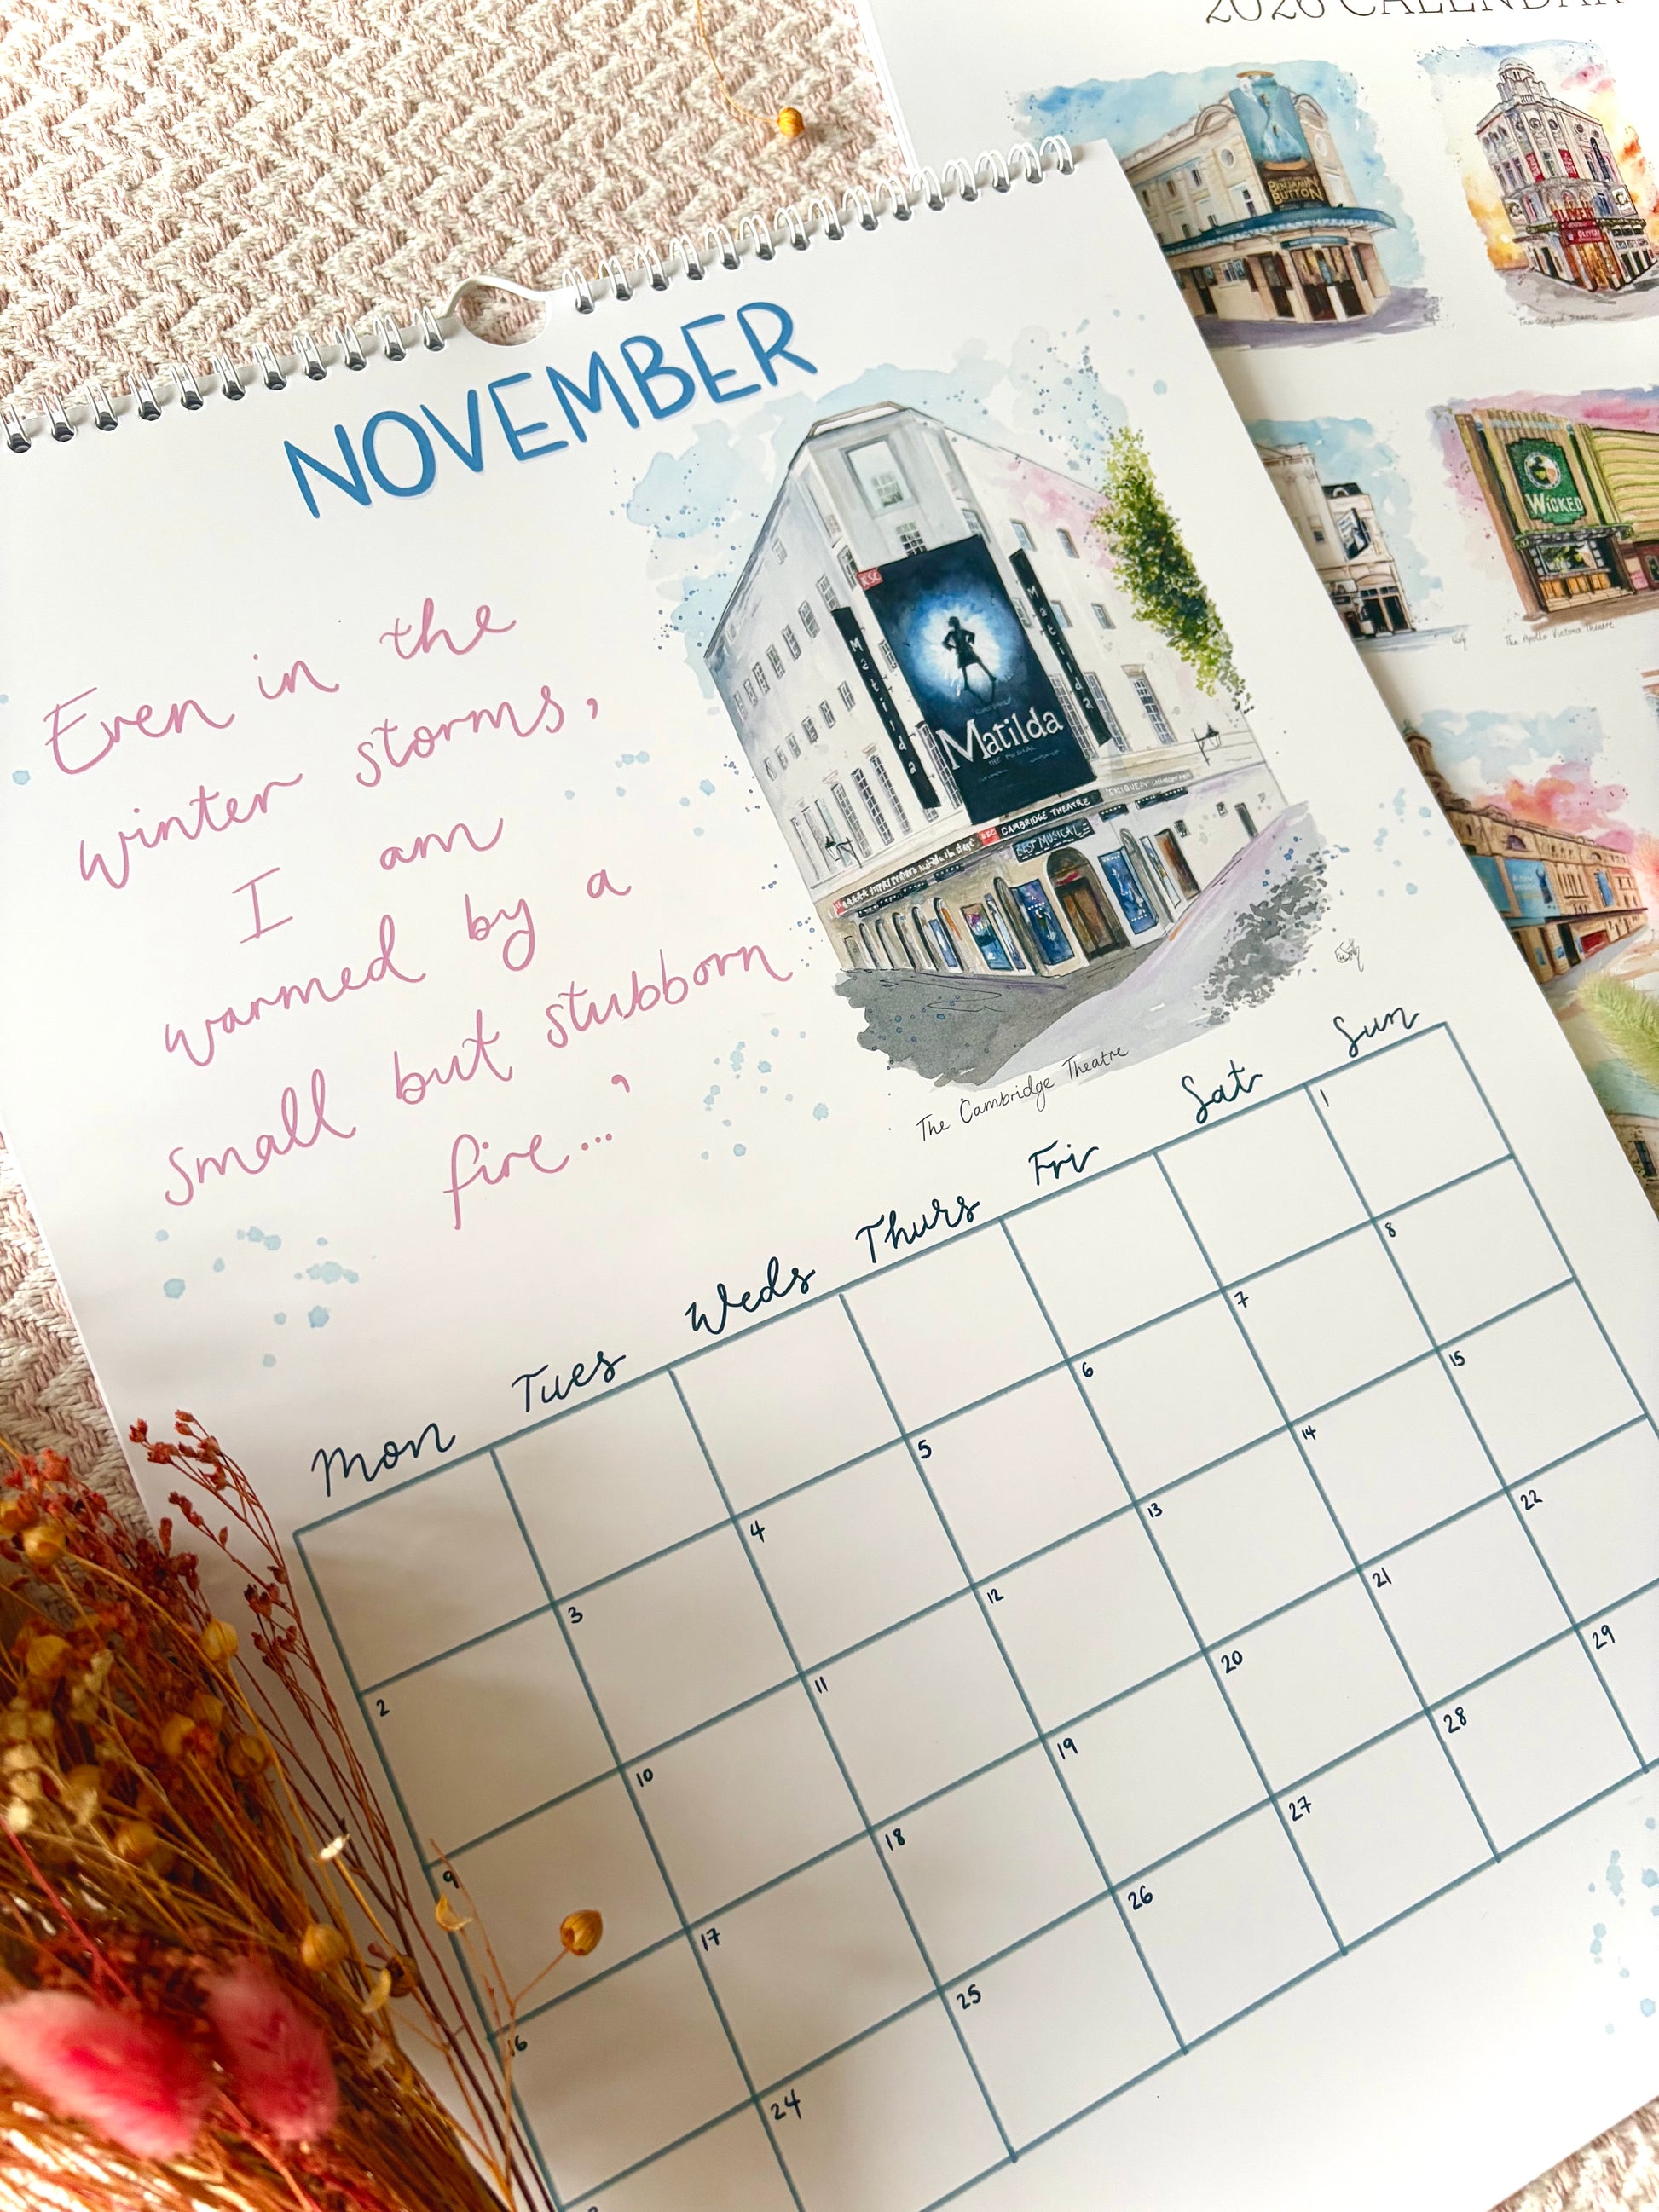 2026 CALENDAR
BENJAMIN
BUTTON
WICKED
The Apollo Victoria Theatre
NOVEMBER
Even in the
winter storms,
I am
warmed by a
small but stubborn
fire...,
RSC
Matilda
Matilda
Matilda
THE MUSICAL
RSC CAMBRIDGE THEATRE
BEST MUSICAL
The Cambridge Theatre
Mon Tues Weds Thurs Fri Sat Sun
1
2 3 4 5 6 7 8
9 10 11 12 13 14 15
16 17 18 19 20 21 22
24 25 26 27 28 29